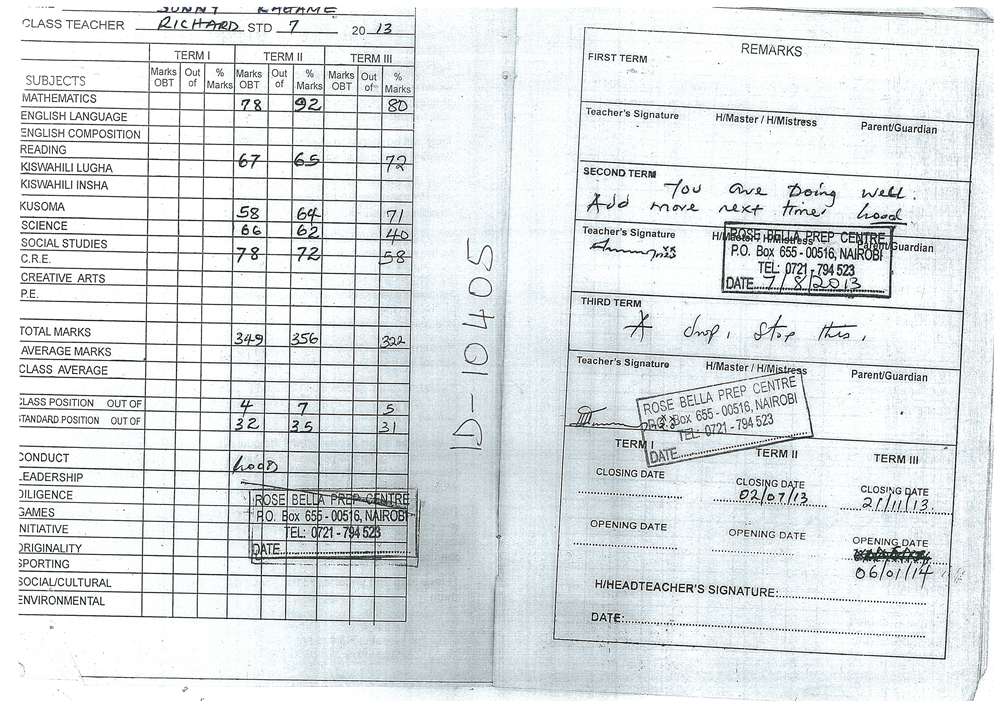 SUNNY KAGAME
CLASS TEACHER RICHARD STD 7 20 13
TERM I TERM II TERM III
SUBJECTS Marks OBT Out of % Marks Marks OBT Out of % Marks Marks OBT Out of % Marks
MATHEMATICS 78 92 80
ENGLISH LANGUAGE
ENGLISH COMPOSITION
READING
KISWAHILI LUGHA 67 65 72
KISWAHILI INSHA
KUSOMA
SCIENCE 58 64 71
SOCIAL STUDIES 66 62 40
C.R.E. 78 72 58
CREATIVE ARTS
P.E.
TOTAL MARKS 349 356 322
AVERAGE MARKS
CLASS AVERAGE
CLASS POSITION OUT OF 4 7 5
STANDARD POSITION OUT OF 32 35 31
CONDUCT Good
LEADERSHIP
DILIGENCE
GAMES
INITIATIVE
ORIGINALITY
SPORTING
SOCIAL/CULTURAL
ENVIRONMENTAL
ROSE BELLA PREP CENTRE
P.O. Box 655 - 00516, NAIROBI
TEL: 0721 - 794 523
DATE
ID-10405
REMARKS
FIRST TERM
Teacher's Signature H/Master / H/Mistress Parent/Guardian
SECOND TERM
You are Doing well.
Add more next time. Good
Teacher's Signature H/Master / H/Mistress Parent/Guardian
ROSE BELLA PREP CENTRE
P.O. Box 655 - 00516, NAIROBI
TEL: 0721 - 794 523
DATE 7/8/2013
THIRD TERM
A drop, stop this.
Teacher's Signature H/Master / H/Mistress Parent/Guardian
ROSE BELLA PREP CENTRE
P.O. Box 655 - 00516, NAIROBI
TEL: 0721 - 794 523
DATE
TERM I TERM II TERM III
CLOSING DATE CLOSING DATE CLOSING DATE
02/07/13 21/11/13
OPENING DATE OPENING DATE OPENING DATE
06/01/14
H/HEADTEACHER'S SIGNATURE:
DATE: